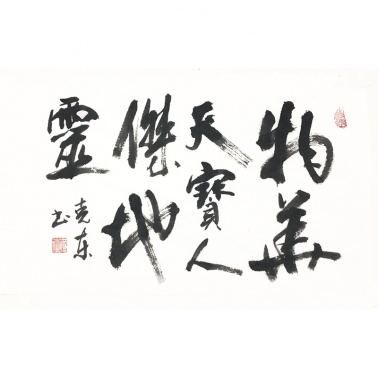 物華
天寶人
傑地
靈
堯东
书